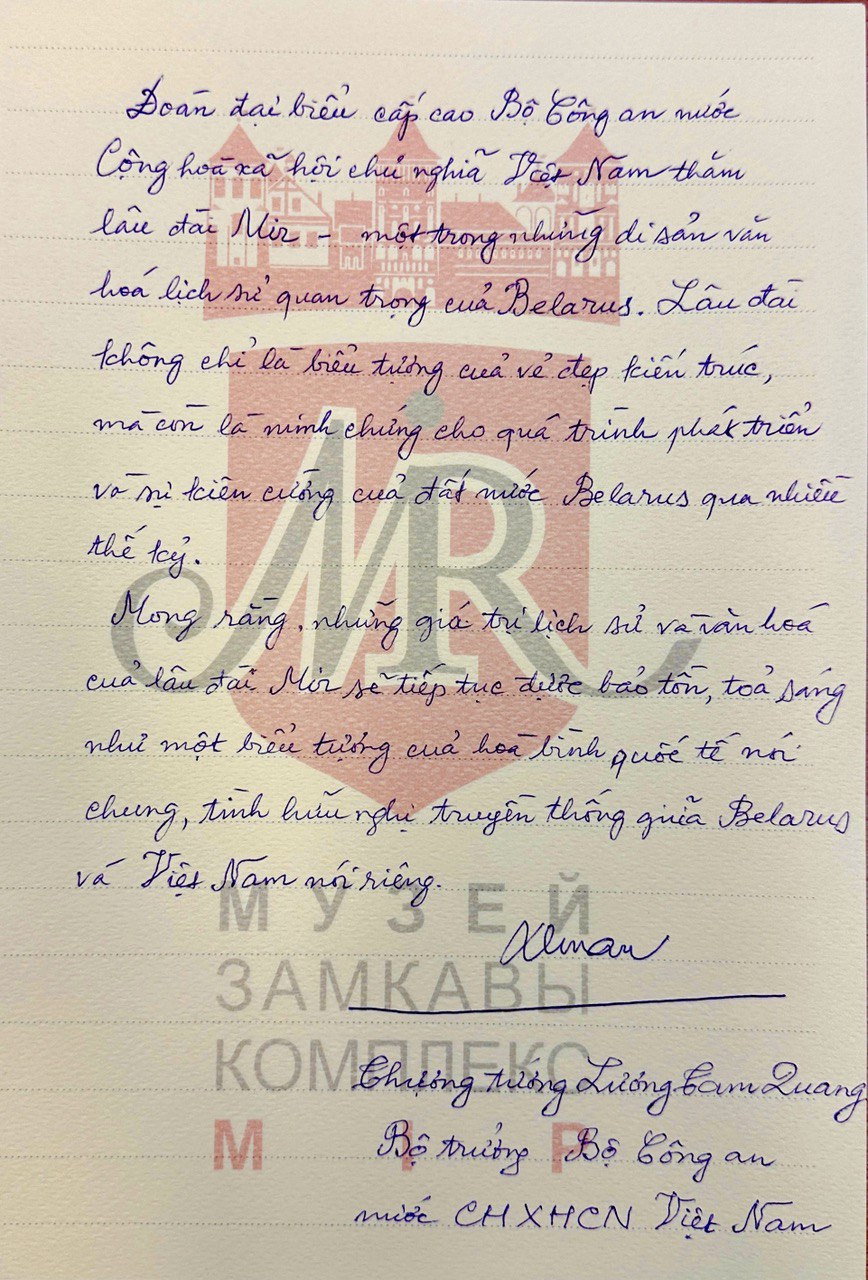 Đoàn đại biểu cấp cao Bộ Công an nước
Cộng hoà xã hội chủ nghĩa Việt Nam thăm
lâu đài Mir – một trong những di sản văn
hoá lịch sử quan trọng của Belarus. Lâu đài
không chỉ là biểu tượng của vẻ đẹp kiến trúc,
mà còn là minh chứng cho quá trình phát triển
và sự kiên cường của đất nước Belarus qua nhiều
thế kỷ.
Mong rằng, những giá trị lịch sử và văn hoá
của lâu đài Mir sẽ tiếp tục được bảo tồn, toả sáng
như một biểu tượng của hoà bình quốc tế nói
chung, tình hữu nghị truyền thống giữa Belarus
và Việt Nam nói riêng.
Thượng tướng Lương Tam Quang
Bộ trưởng Bộ Công an
nước CHXHCN Việt Nam
MIR
МУЗЕЙ
ЗАМКАВЫ
КОМПЛЕКС
МІР